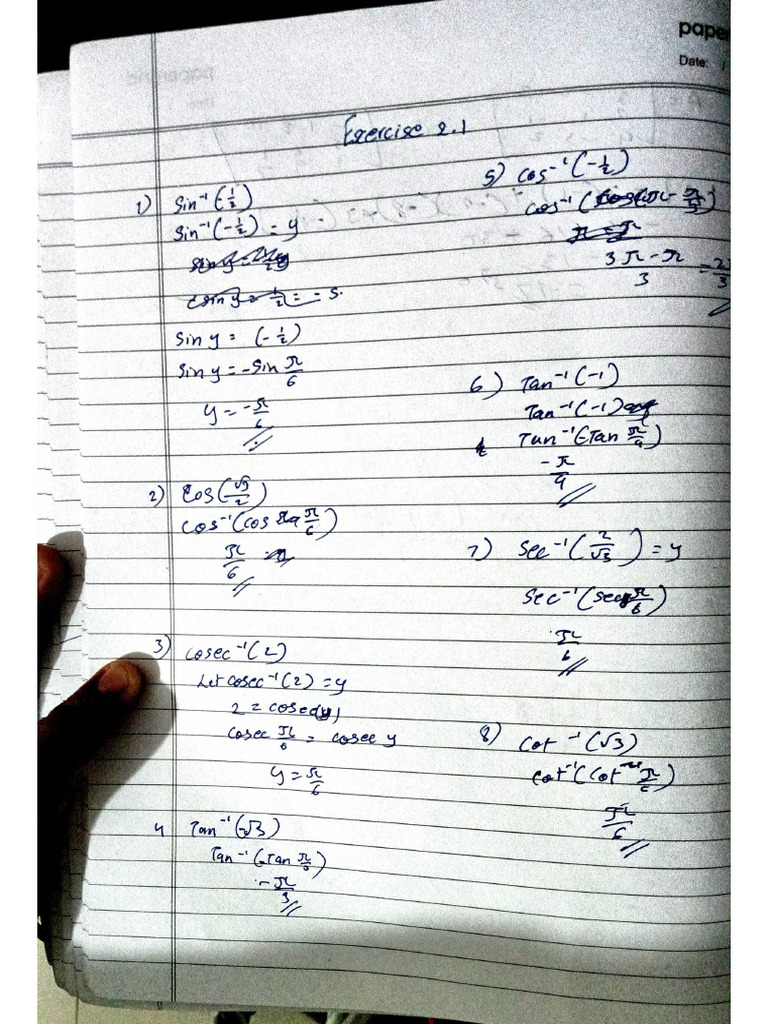 paper
Date: /
Exercise 2.1
1) Sin⁻¹(-1/2)
Sin⁻¹(-1/2) = y
Sin y = (-1/2)
Sin y = -Sin π/6
y = -π/6
2) Cos(√3/2)
Cos⁻¹(cos π/6)
π/6
3) Cosec⁻¹(2)
Let cosec⁻¹(2) = y
2 = cosec(y)
Cosec π/6 = cosec y
y = π/6
4 Tan⁻¹(-√3)
Tan⁻¹(-Tan π/3)
-π/3
5) Cos⁻¹(-1/2)
3π - π / 3 = 2π/3
6) Tan⁻¹(-1)
Tan⁻¹(-1)
Tan⁻¹(-Tan π/4)
-π/4
7) Sec⁻¹(2/√3) = y
Sec⁻¹(sec π/6)
π/6
8) Cot⁻¹(√3)
Cot⁻¹(Cot π/6)
π/6